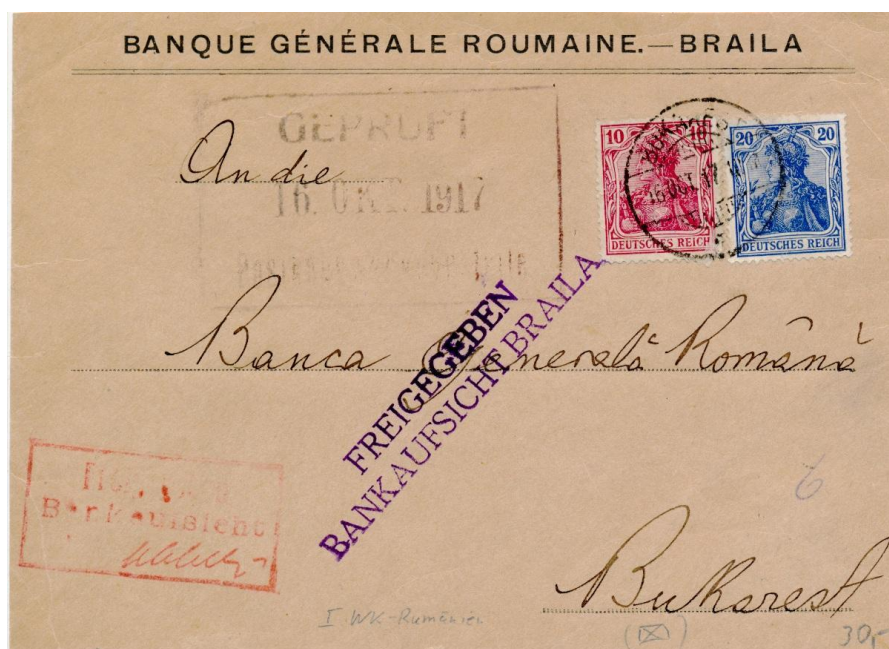 BANQUE GÉNÉRALE ROUMAINE.—BRAILA
GEPRÜFT
16. OKT. 1917
10 10
DEUTSCHES REICH
20 20
DEUTSCHES REICH
16 OCT. 17
An die
Banca Generală Română
FREIGEGEBEN
BANKAUFSICHT BRAILA
Bankaufsicht
6
Bukarest
I. WK-Rumänien
30,-